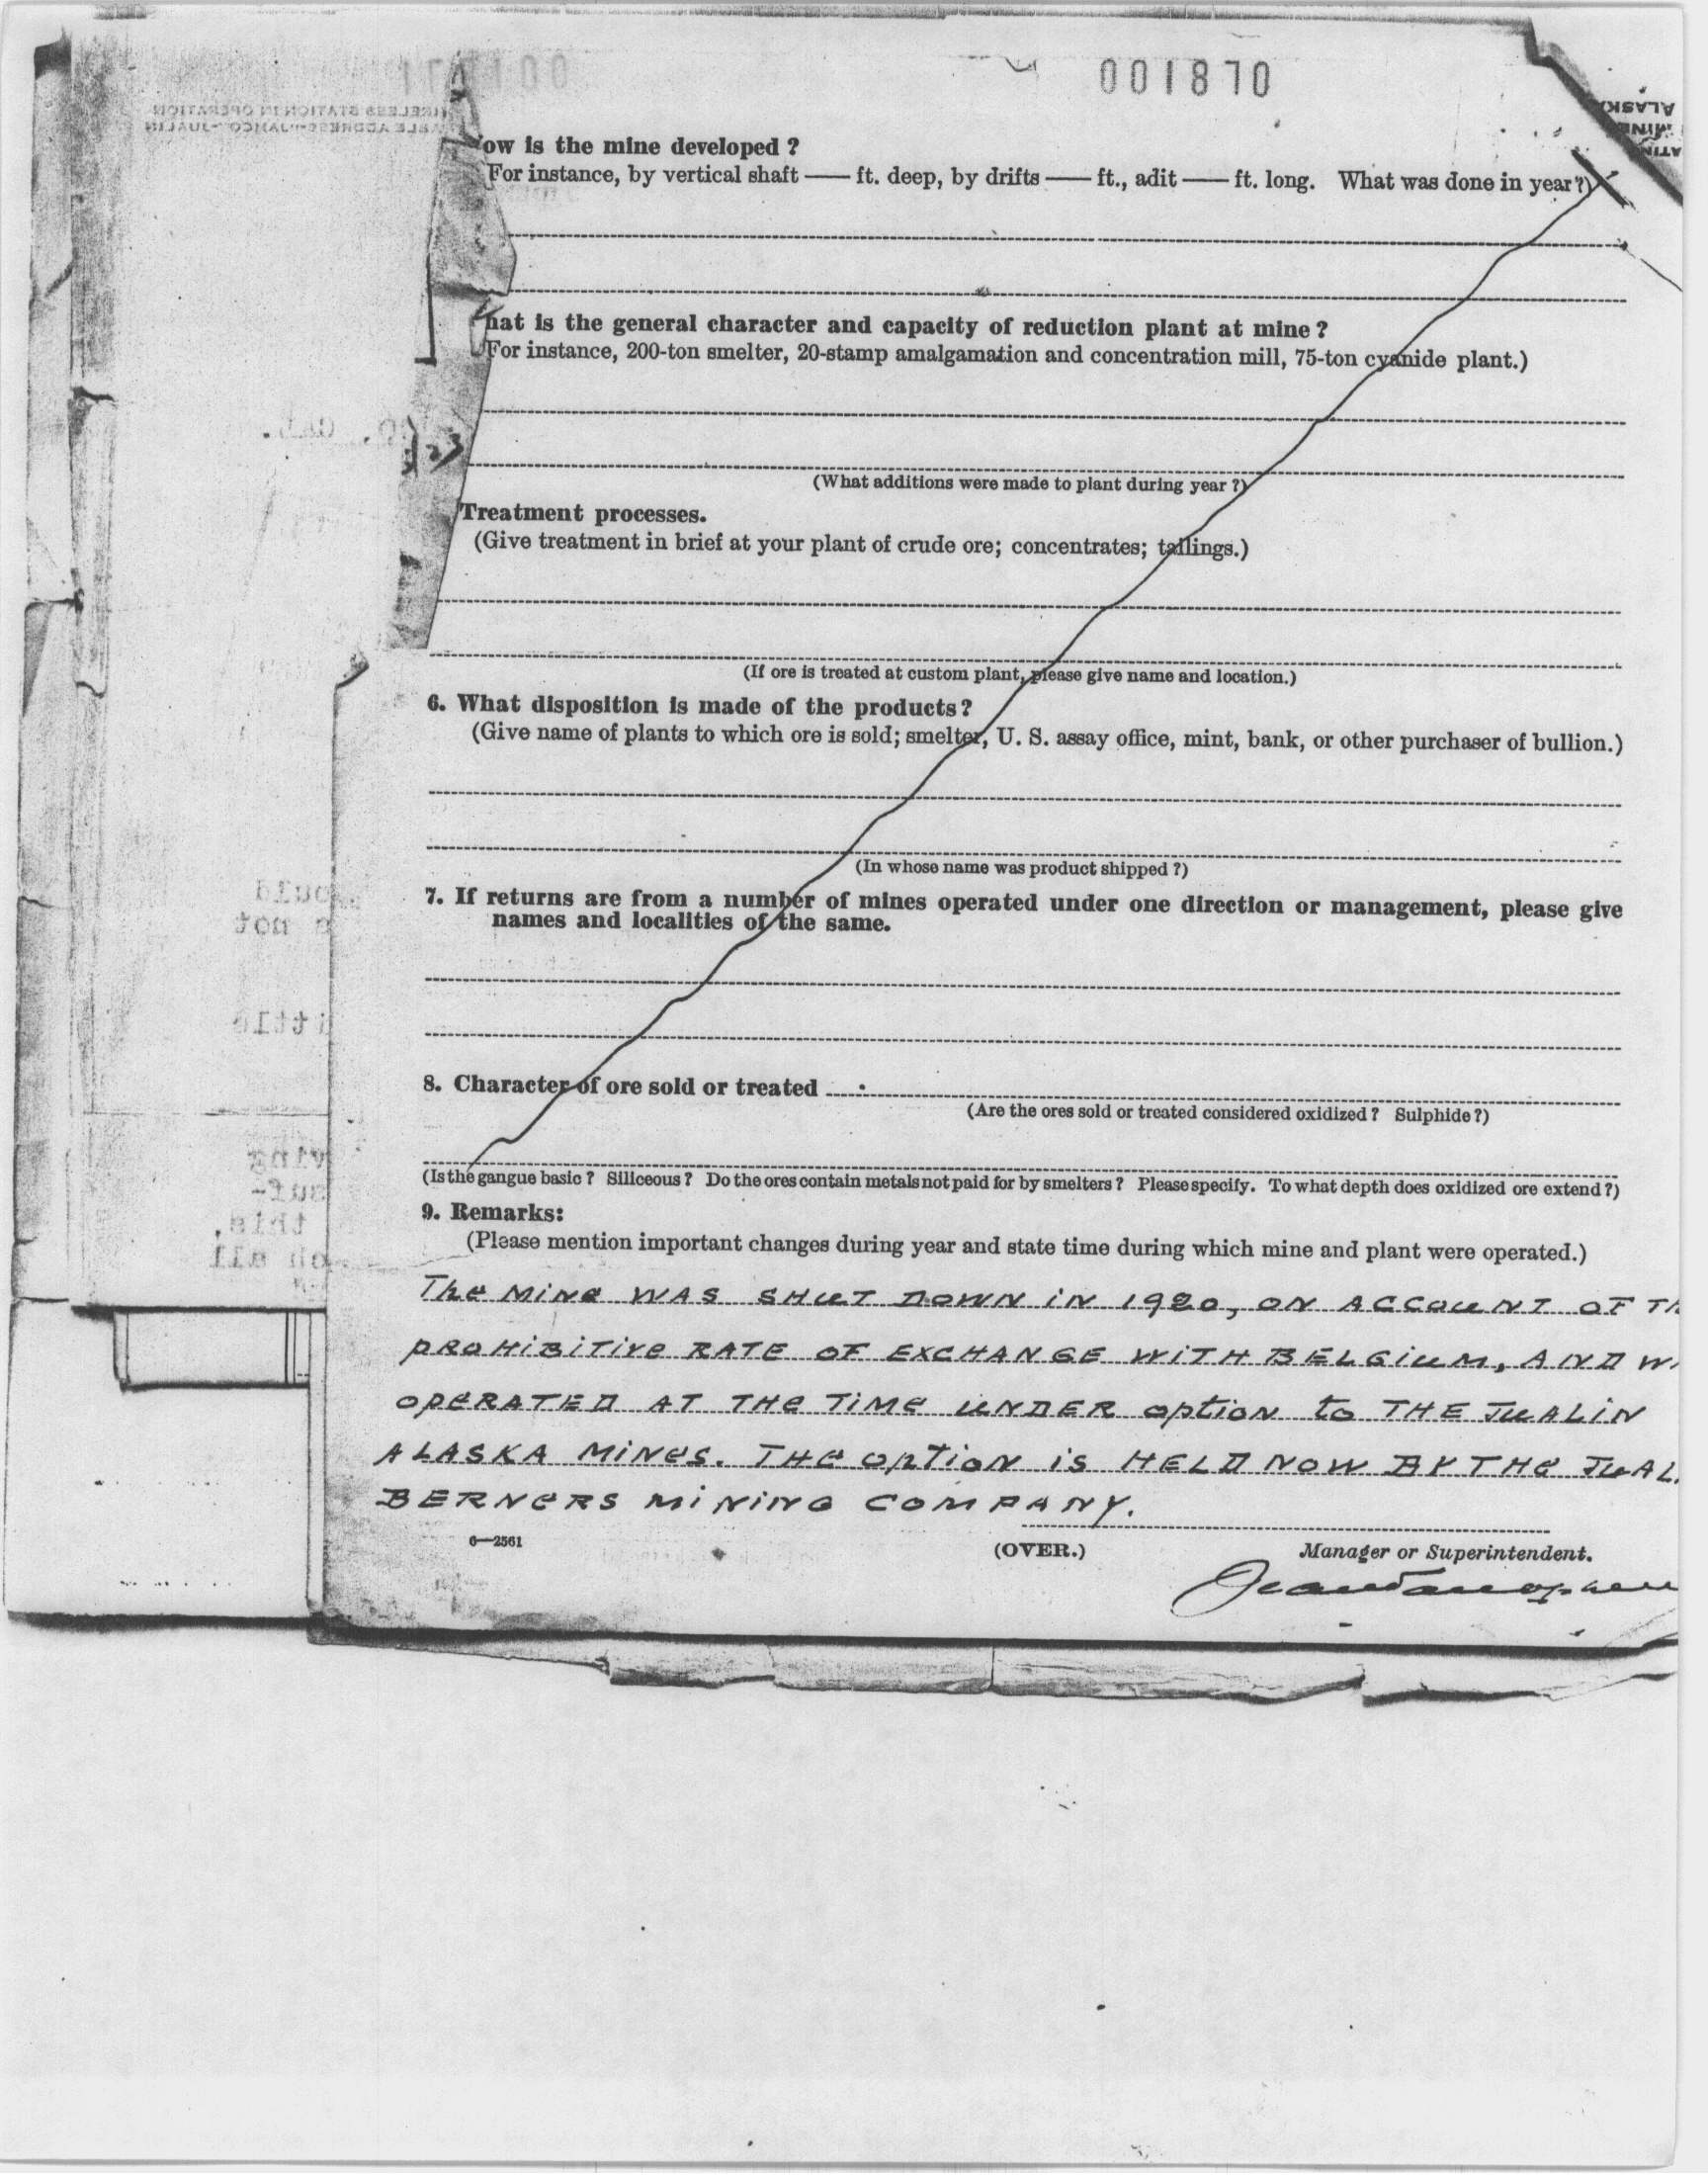 001870
ow is the mine developed ?
For instance, by vertical shaft —— ft. deep, by drifts —— ft., adit —— ft. long. What was done in year ?)
hat is the general character and capacity of reduction plant at mine ?
For instance, 200-ton smelter, 20-stamp amalgamation and concentration mill, 75-ton cyanide plant.)
(What additions were made to plant during year ?)
Treatment processes.
(Give treatment in brief at your plant of crude ore; concentrates; tailings.)
(If ore is treated at custom plant, please give name and location.)
6. What disposition is made of the products ?
(Give name of plants to which ore is sold; smelter, U. S. assay office, mint, bank, or other purchaser of bullion.)
(In whose name was product shipped ?)
7. If returns are from a number of mines operated under one direction or management, please give
names and localities of the same.
8. Character of ore sold or treated
(Are the ores sold or treated considered oxidized ? Sulphide ?)
(Is the gangue basic ? Siliceous ? Do the ores contain metals not paid for by smelters ? Please specify. To what depth does oxidized ore extend ?)
9. Remarks:
(Please mention important changes during year and state time during which mine and plant were operated.)
The MINe WAS SHUT DOWN IN 1920, ON ACCOUNT OF TH
PROHIBITIVE RATE OF EXCHANGE WITH BELGIUM, AND W
OPERATED AT THE TIME UNDER OPTION TO THE JUALIN
ALASKA MINES. THE OPTION IS HELD NOW BY THE JUAL
BERNERS MINING COMPANY.
6—2561
(OVER.)
Manager or Superintendent.